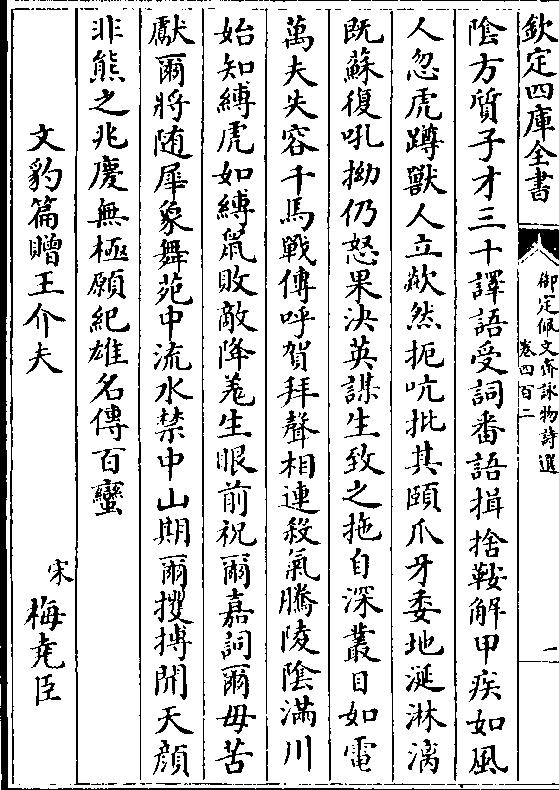 欽定四庫全書
御定佩文齋詠物詩選
卷四百二
一
陰方質子才三十譯語受詞番語揖捨鞍解甲疾如風
人忽虎蹲獸人立欻然扼吭批其頤爪牙委地涎淋漓
既蘇復吼拗仍怒果決英謀生致之拖自深叢目如電
萬夫失容千馬戰傳呼賀拜聲相連殺氣騰陵陰滿川
始知縛虎如縛鼠敗敵降羗生眼前祝爾嘉詞爾毋苦
獻爾將随犀象舞苑中流水禁中山期爾攫搏開天顔
非熊之兆慶無極願紀雄名傳百蠻
文豹篇贈王介夫
宋
梅堯臣